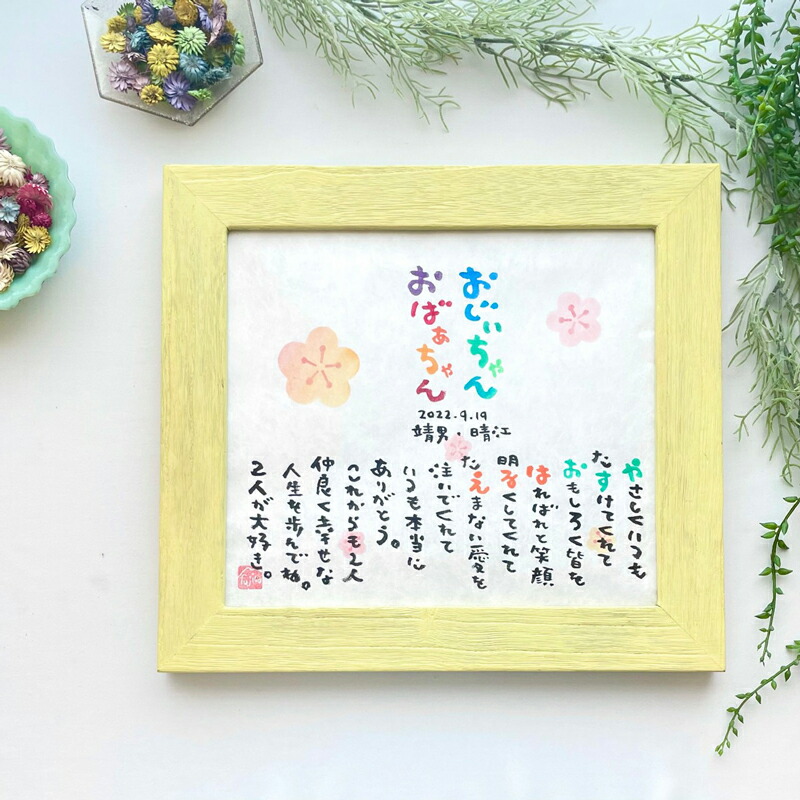 おじぃちゃん
おばぁちゃん
2022.9.19
靖男・晴江
やさしくいつも
たすけてくれて
おもしろく皆を
はればれと笑顔
明るくしてくれて
たえまない愛を
注いでくれて
いつも本当に
ありがとう。
これからも2人
仲良く幸せな
人生を歩んでね。
2人が大好き。